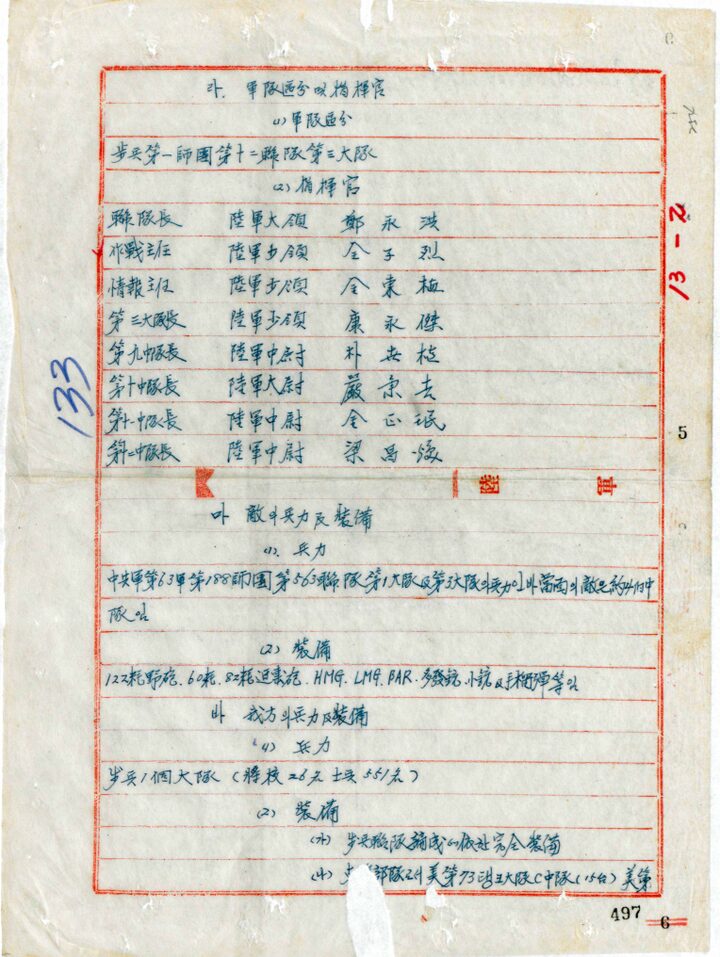 라. 軍隊區分 및 指揮官
(1) 軍隊區分
步兵第一師團第十二聯隊第三大隊
(2) 指揮官
聯隊長 陸軍大領 鄭永洪
作戰主任 陸軍少領 全子烈
情報主任 陸軍少領 全東植
第三大隊長 陸軍少領 康永傑
第九中隊長 陸軍中尉 朴
第十中隊長 陸軍大尉 嚴
第十一中隊長 陸軍中尉 全正珉
第十二中隊長 陸軍中尉 梁昌
陸 軍
마 敵의 兵力 及 裝備
(1). 兵力
中共軍第63軍第188師團第563聯隊第1大隊及第3大隊의 兵力인바 當面의 敵은 約4個中
隊임
(2) 裝備
122粍野砲. 60粍. 82粍迫擊砲. HMG. LMG. BAR. 多發銃. 小銃及手榴彈等임
바 我方의 兵力及裝備
(1) 兵力
步兵1個大隊 (將校26名 士兵551名)
(2) 裝備
(가) 步兵聯隊編成에 依한 完全裝備
(나) 部隊로서 美第73탕크大隊C中隊(15台) 美第
133
13-2
5
497
6